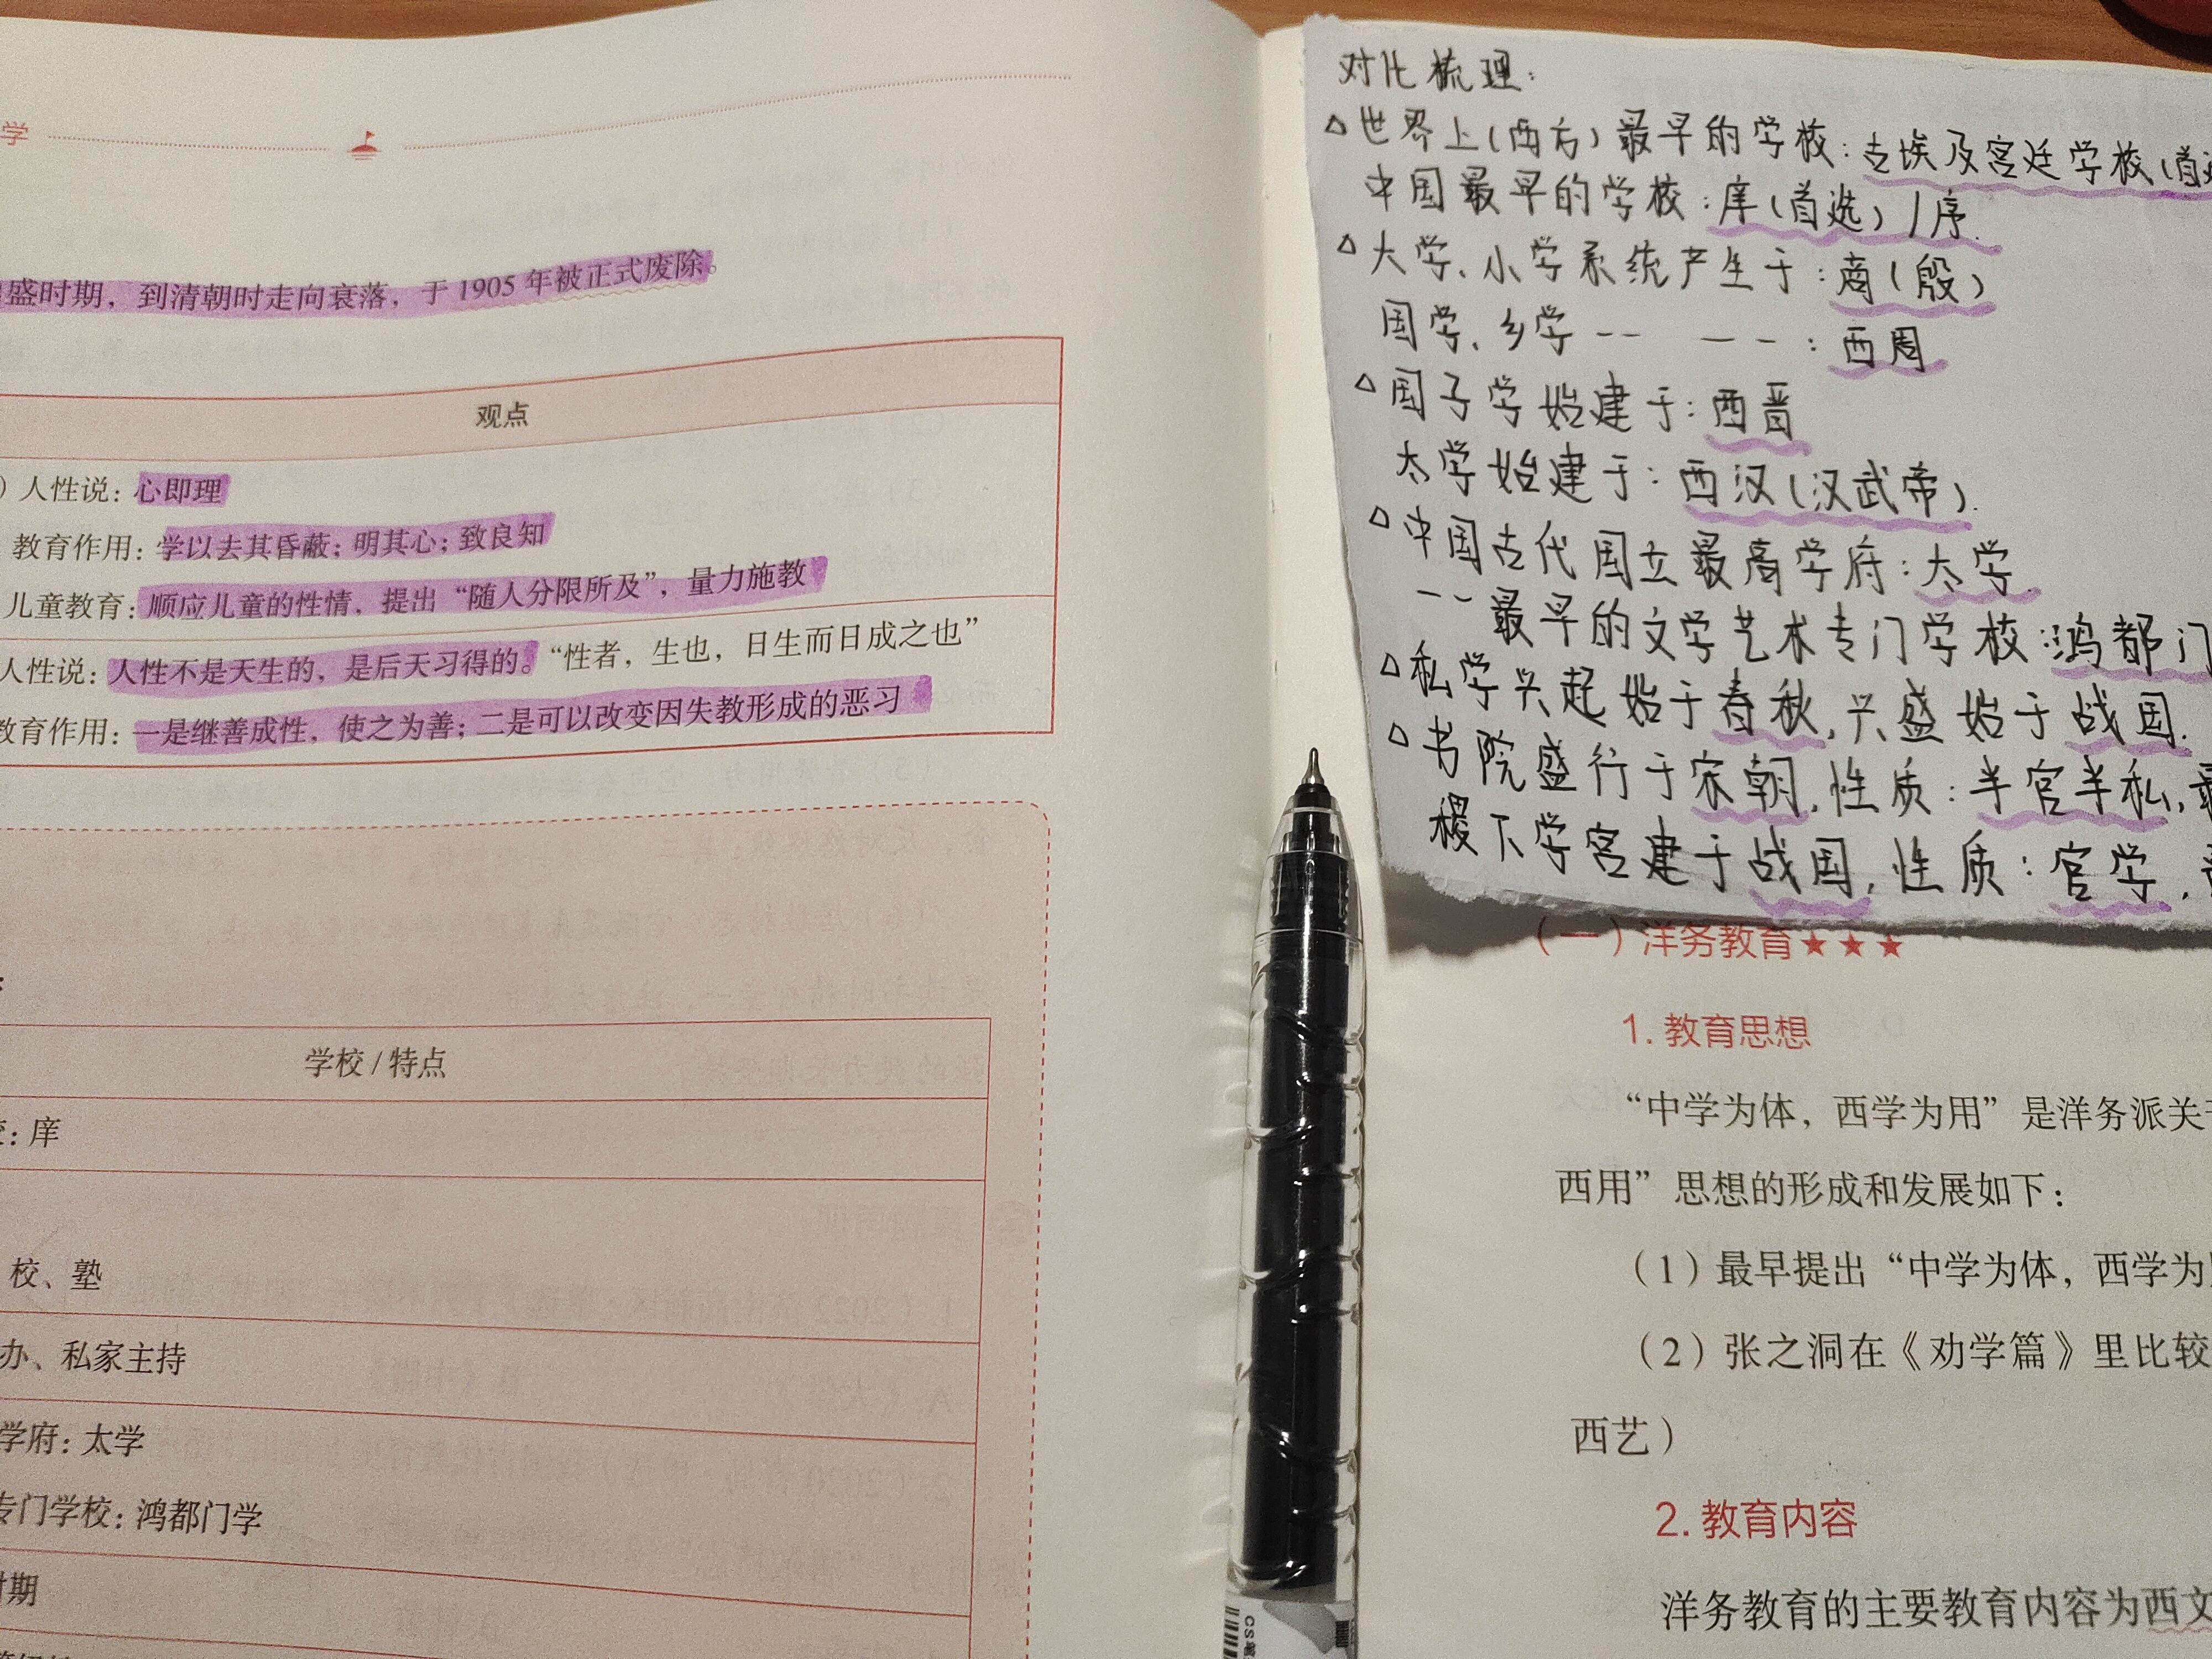 学
盛时期，到清朝时走向衰落，于 1905 年被正式废除。
观点
）人性说：心即理
教育作用：学以去其昏蔽；明其心；致良知
儿童教育：顺应儿童的性情，提出“随人分限所及”，量力施教
人性说：人性不是天生的，是后天习得的。“性者，生也，日生而日成之也”
教育作用：一是继善成性，使之为善；二是可以改变因失教形成的恶习
学校 / 特点
：庠
校、塾
办、私家主持
学府：太学
专门学校：鸿都门学
时期
对比梳理：
△世界上（西方）最早的学校：古埃及宫廷学校（首
中国最早的学校：庠（首选）/序.
△大学、小学系统产生于：商（殷）
国学、乡学 -- -- -：西周
△国子学始建于：西晋
太学始建于：西汉（汉武帝）.
△中国古代国立最高学府：太学.
-- 最早的文学艺术专门学校：鸿都门
△私学兴起始于春秋，兴盛始于战国.
△书院盛行于宋朝，性质：半官半私，最
稷下学宫建于战国，性质：官学，
（一）洋务教育★★★
1. 教育思想
“中学为体，西学为用”是洋务派关于
西用”思想的形成和发展如下：
（1）最早提出“中学为体，西学为
（2）张之洞在《劝学篇》里比较
西艺）
2. 教育内容
洋务教育的主要教育内容为西文